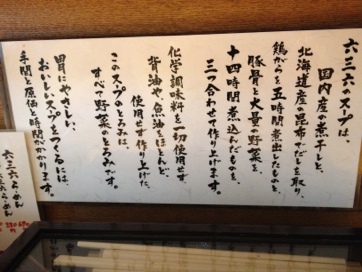 六三六のスープは、
国内産の煮干しと、
北海道産の昆布でだしを取り、
鶏がらを五時間煮出したものと、
豚骨と大量の野菜を、
十四時間煮込んだものを、
三つ合わせて作り上げます。
化学調味料を一切使用せず
背油や、魚油をほとんど
使用せず作り上げた、
このスープのとろみは、
すべて野菜のとろみです。
胃にやさしい、
おいしいスープをつくるには、
手間と原価と時間がかかります。
六三六らーめん